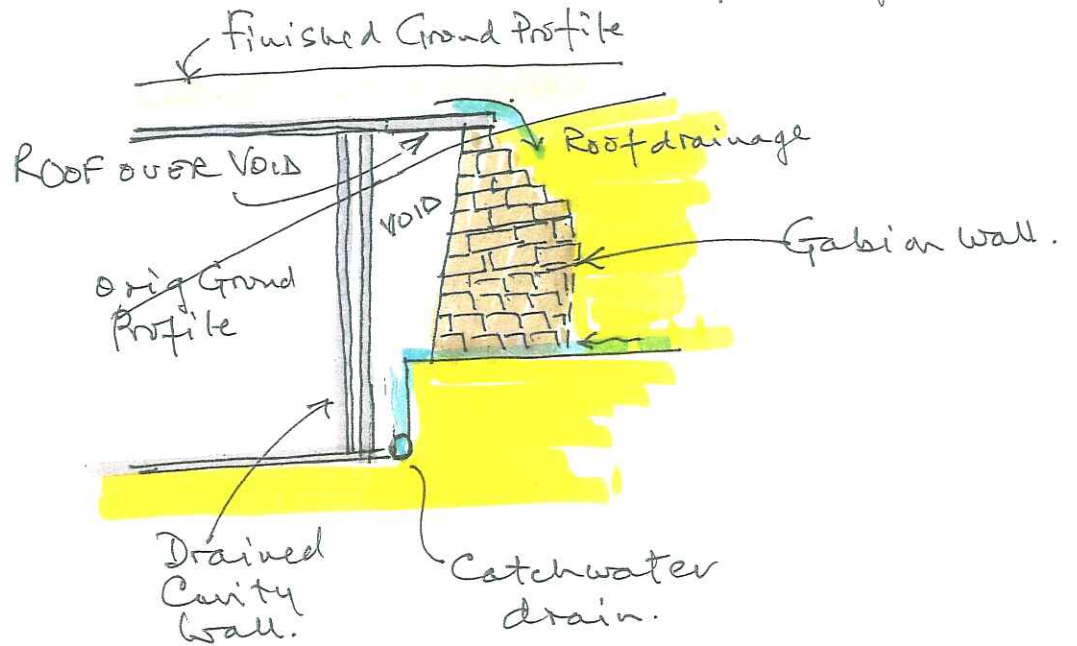 Finished Ground Profile
Roof drainage
ROOF OVER VOID
VOID
Gabion Wall.
Orig Ground
Profile
Drained
Cavity
Wall.
Catchwater
drain.